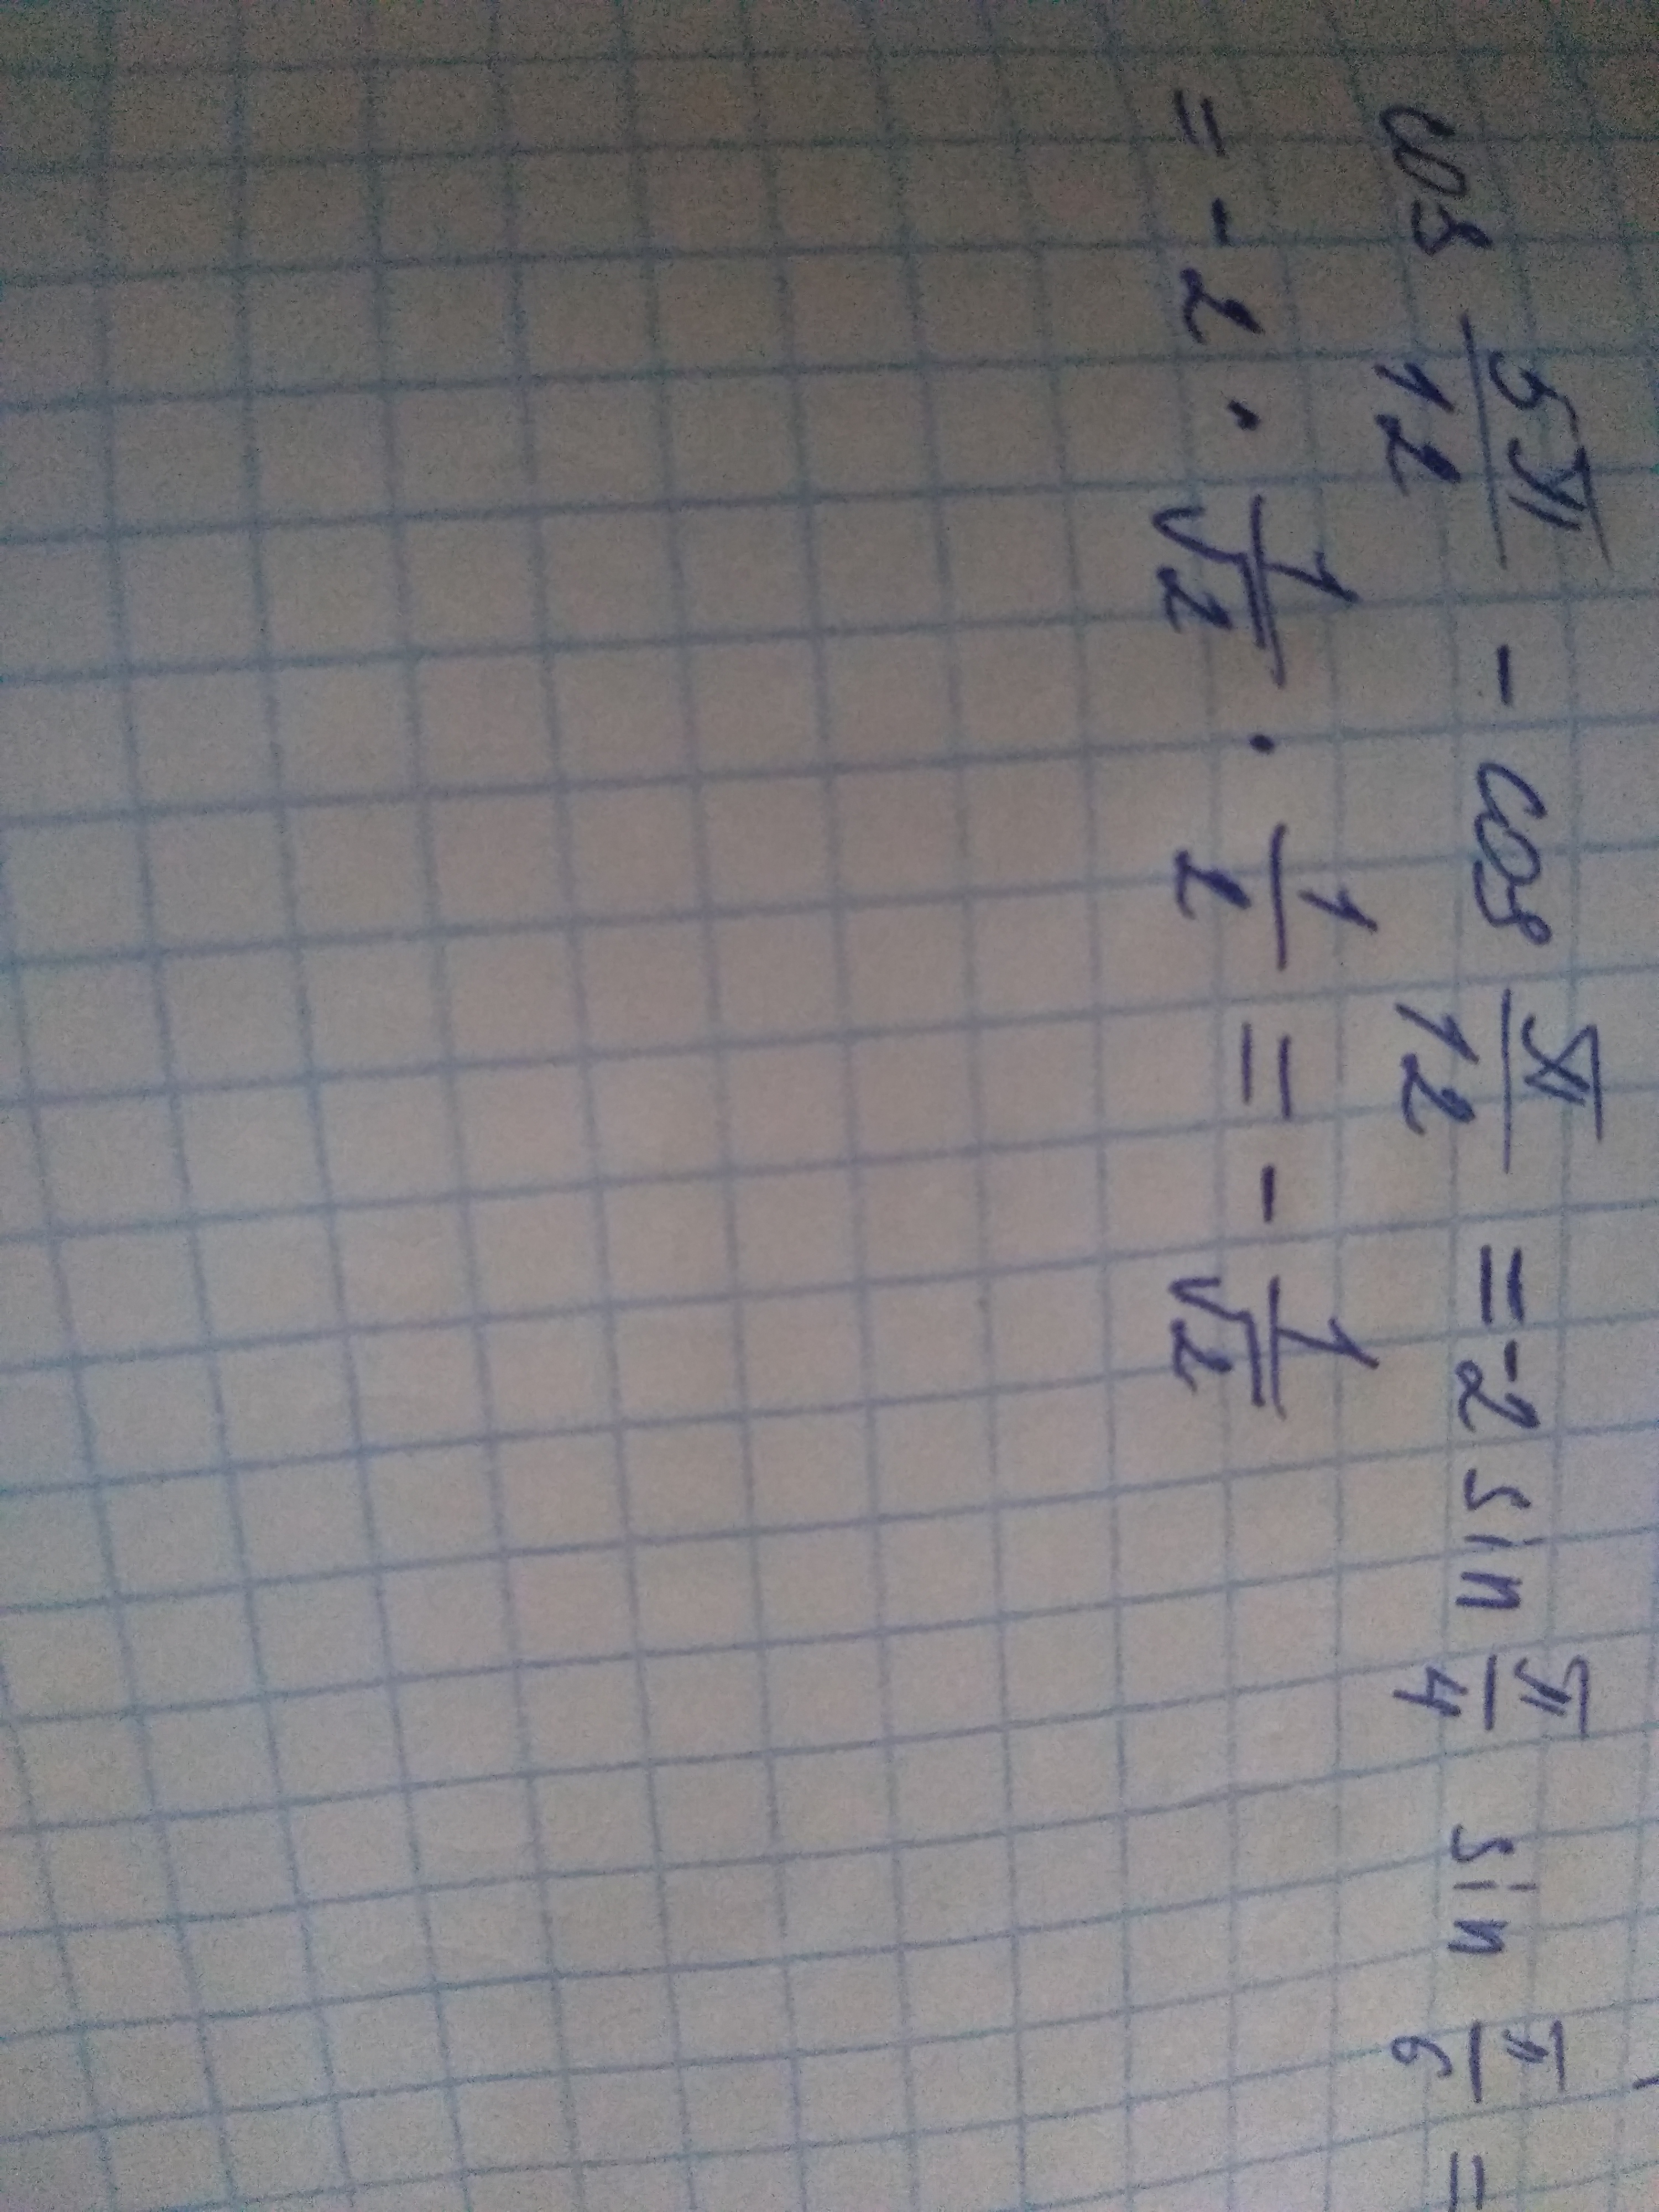 cos 5π/12 - cos π/12 = -2 sin π/4 sin π/6 =
= -2 · 1/√2 · 1/2 = - 1/√2